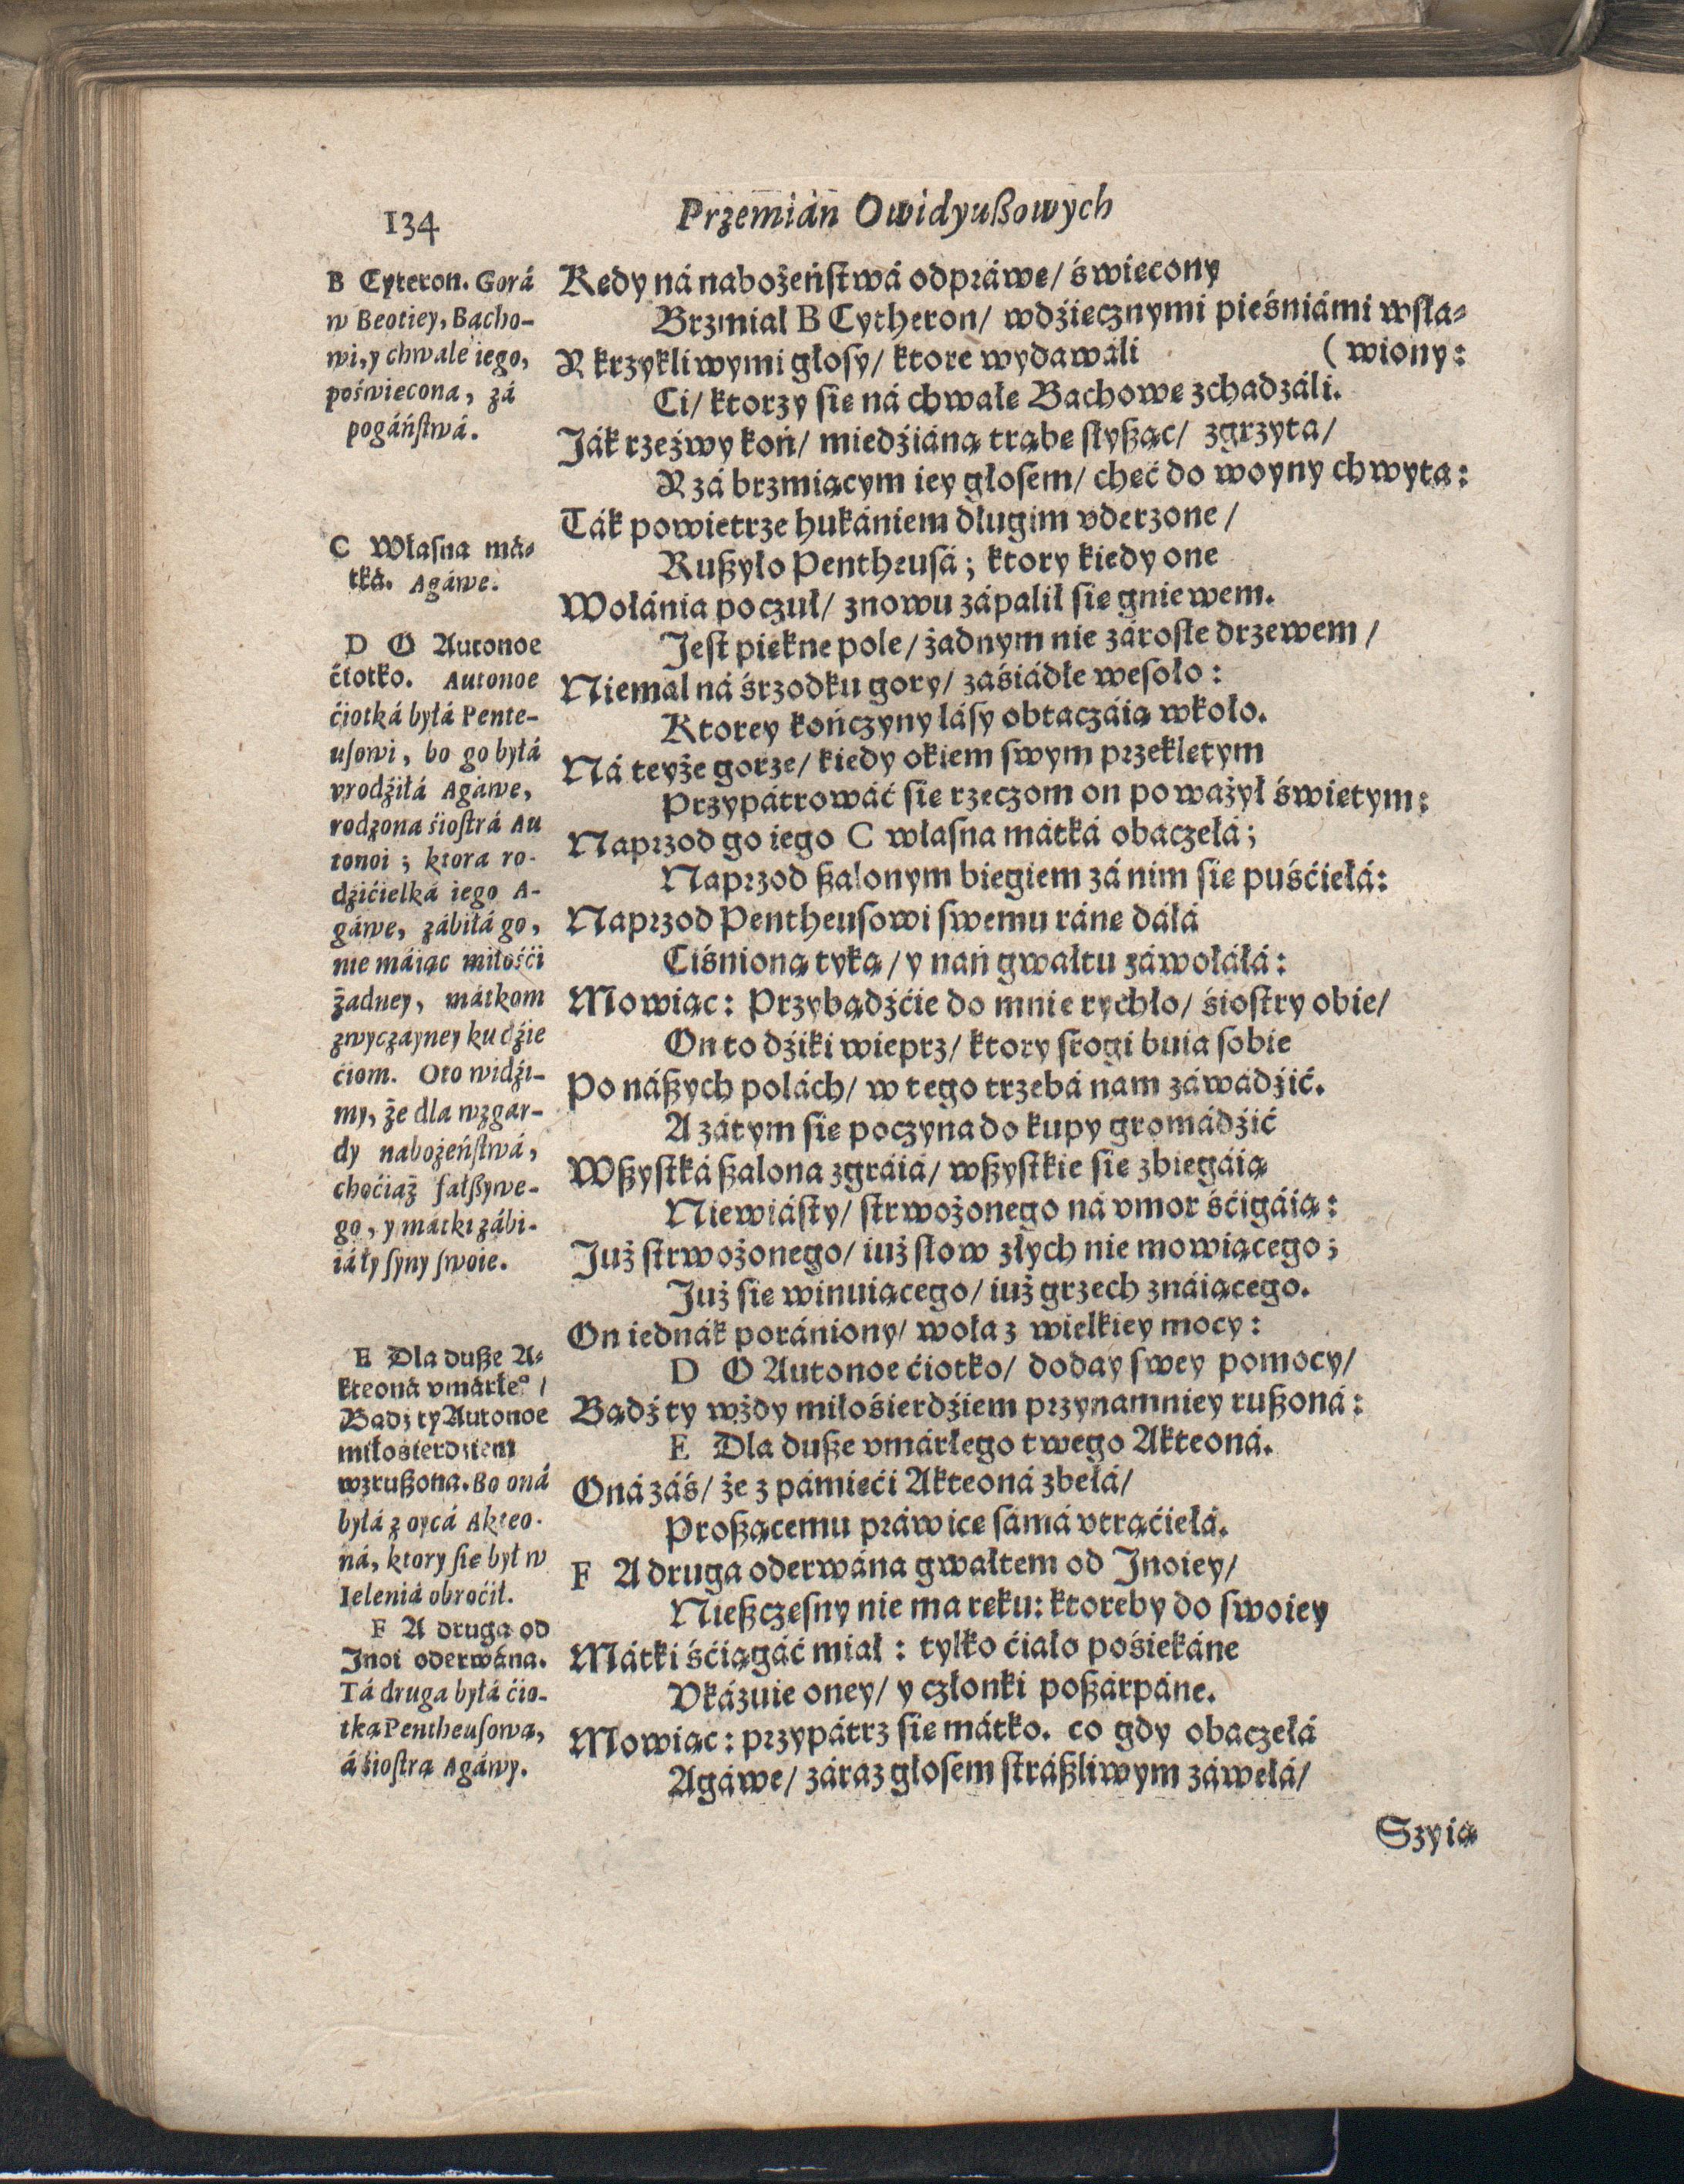 134
Przemián Owidyußowych
B Cyteron. Gorá
w Beotiey, Bacho-
wi, y chwale iego,
poświecona, zá
pogáńſtwá.
C Własna má-
tká. Agáwe.
D O Autonoe
ćiotko. Autonoe
ćiotká byłá Pente-
uſowi, bo go byłá
vrodźiłá Agáwe,
rodzona śioſtrá Au
tonoi; ktora ro-
dźićielká iego A-
gáwe, zábiłá go,
nie máiąc miłośći
żadney, mátkom
zwyczayney ku dźie
ćiom. Oto widźi-
my, że dla wzgár-
dy nabożeńſtwá,
choćiaż fałßywe-
go, y mátki zábi-
iáły ſyny ſwoie.
E Dla duße A-
kteoná vmárłeᵒ /
Bądź ty Autonoe
miłośierdźiem
wzrußona. Bo oná
byłá z oycá Akteo-
ná, ktory ſie był w
Ieleniá obroćił.
F A druga od
Jnoi oderwána.
Tá druga byłá ćio-
tką Pentheuſową,
á śioſtrą Agáwy.
Kedy ná nabożeńſtwá odpráwe/ świecony
Brzmiał B Cytheron/ wdźiecznymi pieśniámi wſła-
Y krzykliwymi głoſy/ ktore wydawáli (wiony:
Ci/ ktorzy ſie ná chwałe Bachowe zchadzáli.
Ják rzeźwy koń/ miedźiáną trąbe ſłyßąc/ zgrzyta/
Y zá brzmiącym iey głoſem/ cheć do woyny chwyta:
Ták powietrze hukániem długim vderzone/
Rußyło Pentheuſá; ktory kiedy one
Wołánia poczuł/ znowu zápalił ſie gniewem.
Jeſt piekne pole/ żadnym nie zárosłe drzewem/
Niemal ná śrzodku gory/ záśiádłe weſoło:
Ktorey kończyny láſy obtaczáią wkoło.
Ná teyże gorze/ kiedy okiem swym przekletym
Przypátrowáć ſie rzeczom on poważył świetym:
Naprzod go iego C własna mátká obaczełá;
Naprzod ßalonym biegiem zá nim ſie puśćiełá:
Naprzod Pentheuſowi swemu ráne dáłá
Ciśnioną tyką/ y nań gwałtu záwołáłá:
Mowiąc: Przybądźćie do mnie rychło/ śioſtry obie/
On to dźiki wieprz/ ktory ſrogi buia ſobie
Po náßych polách/ w tego trzebá nam záwádźić.
A zátym ſie poczyna do kupy gromádźić
Wßyſtká ßalona zgráiá/ wßyſtkie ſie zbiegáią
Niewiáſty/ ſtrwożonego ná vmor śćigáią:
Już ſtrwożonego/ iuż słow złych nie mowiącego;
Już ſie winuiącego/ iuż grzech znáiącego.
On iednák porániony/ woła z wielkiey mocy:
D O Autonoe ćiotko/ doday swey pomocy/
Bądź ty wżdy miłośierdźiem przynamniey rußoná:
E Dla duße vmárłego twego Akteoná.
Oná záś/ że z pámieći Akteoná zbełá/
Proßącemu práwice ſámá vtrąćiełá.
F A druga oderwána gwałtem od Jnoiey/
Nießczesny nie ma reku: ktoreby do swoiey
Mátki śćiągáć miał: tylko ćiało pośiekáne
Vkázuie oney/ y członki poßárpáne.
Mowiąc: przypátrz ſie mátko. co gdy obaczełá
Agáwe/ záraz głoſem ſtráßliwym záwełá/
Szyią